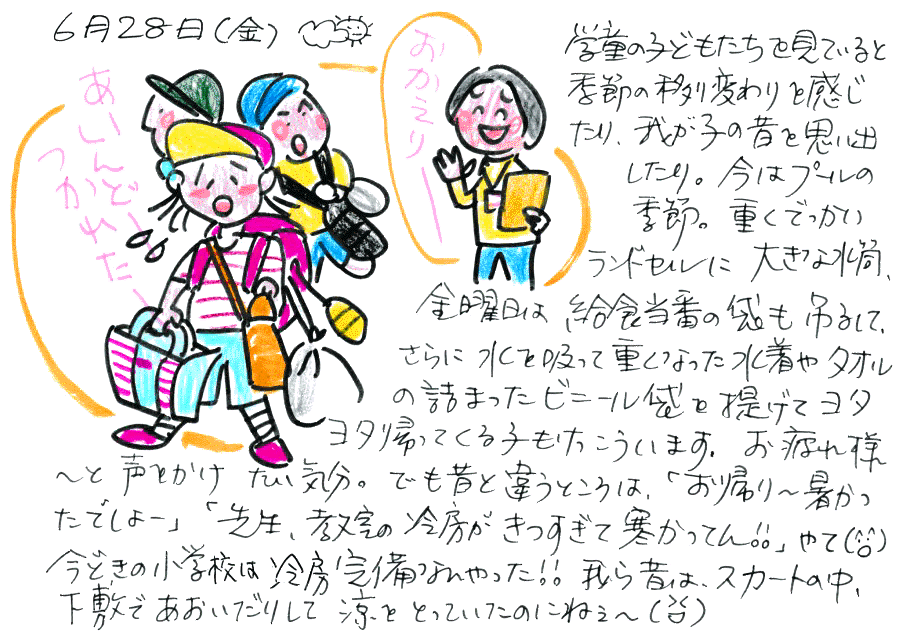 6月28日(金)
あいんどい
つかれたー
おかえりー
学童の子どもたちを見ていると
季節の移り変わりを感じ
たり、我が子の昔を思い出
したり。今はプールの
季節。重くてでっかい
ランドセルに 大きな水筒、
金曜日は、給食当番の袋も吊るして、
さらに水を吸って重くなった水着やタオル
の詰まったビニール袋を提げてヨタ
ヨタ帰ってくる子もけっこういます。お疲れ様
〜と声をかけたい気分。でも昔と違うところは、「お帰り〜暑かっ
たでしょー」「先生、教室の冷房がきつすぎて寒かってん!!」やて(笑)
今どきの小学校は冷房完備なんやった!! 我ら昔は、スカートの中、
下敷であおいだりして 涼をとっていたのにねぇ〜(笑)